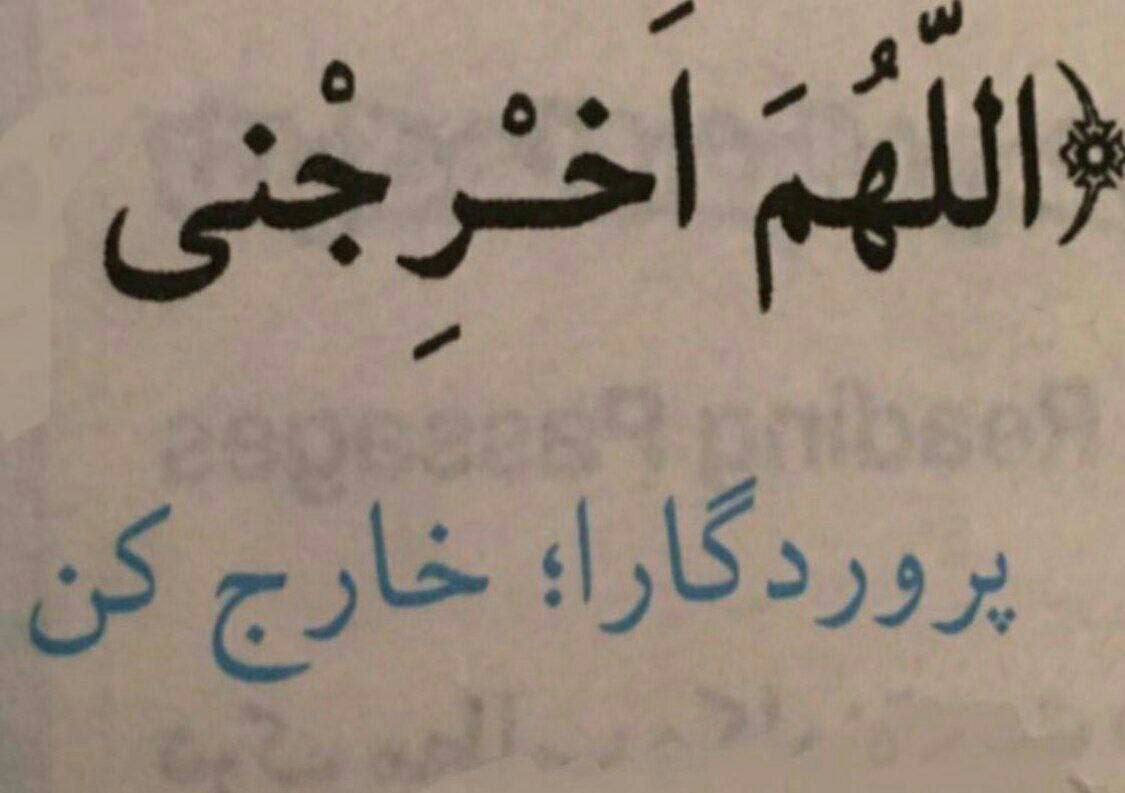 ﴿اللّهُمَ اَخْرِجْنی
پروردگارا؛ خارج کن
Reading Passages